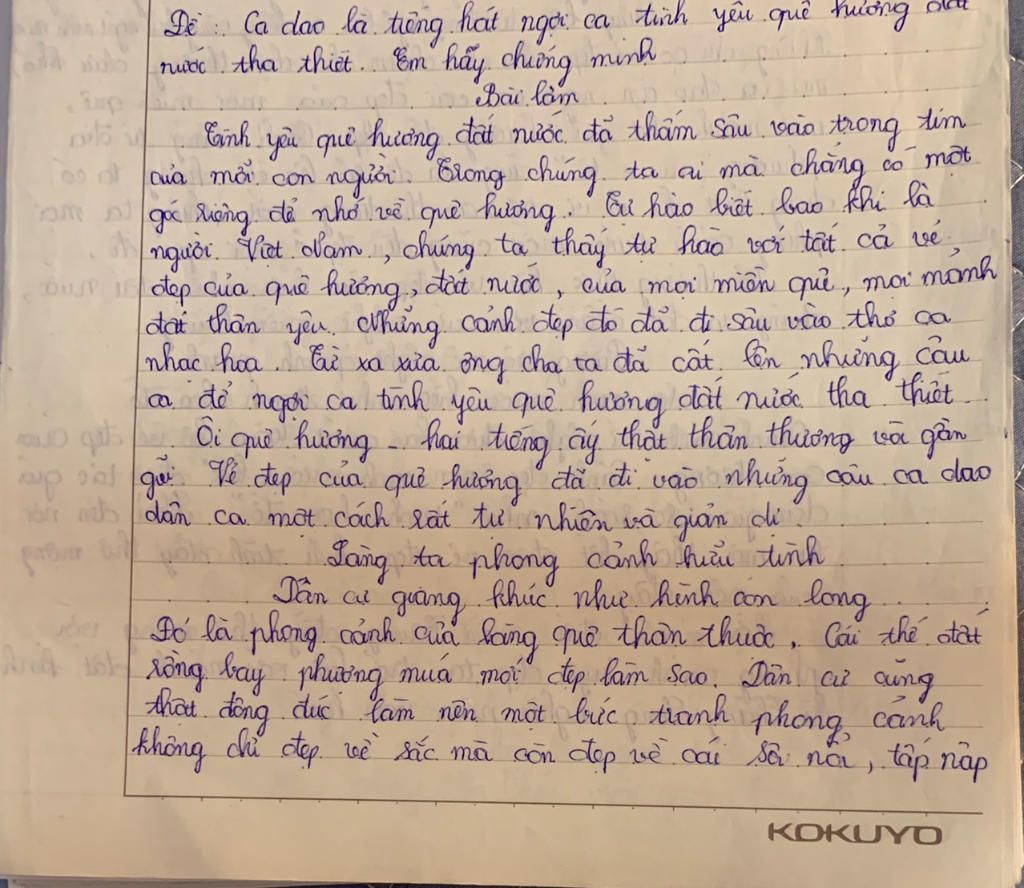 Đề: Ca dao là tiếng hát ngợi ca tình yêu quê hương đất
nước tha thiết. Em hãy chứng minh
Bài làm
Tình yêu quê hương đất nước đã thấm sâu vào trong tim
của mỗi con người. Trong chúng ta ai mà chẳng có một
góc riêng để nhớ về quê hương. Tự hào biết bao khi là
người Việt Nam, chúng ta thấy tự hào với tất cả vẻ
đẹp của quê hương, đất nước, của mọi miền quê, mọi mảnh
đất thân yêu. Những cảnh đẹp đó đã đi sâu vào thơ ca
nhạc hoạ. Từ xa xưa ông cha ta đã cất lên những câu
ca để ngợi ca tình yêu quê hương đất nước tha thiết.
Ôi quê hương - hai tiếng ấy thật thân thương và gần
gũi. Vẻ đẹp của quê hương đã đi vào những câu ca dao
dân ca một cách rất tự nhiên và giản dị.
Làng ta phong cảnh hữu tình
Dân cư giang khúc như hình con long
Đó là phong cảnh của làng quê thân thuộc. Cái thế đất
rồng bay phượng múa mới đẹp làm sao. Dân cư cũng
thật đông đúc làm nên một bức tranh phong cảnh
không chỉ đẹp về sắc mà còn đẹp về cái sôi nổi, tấp nập
KOKUYO